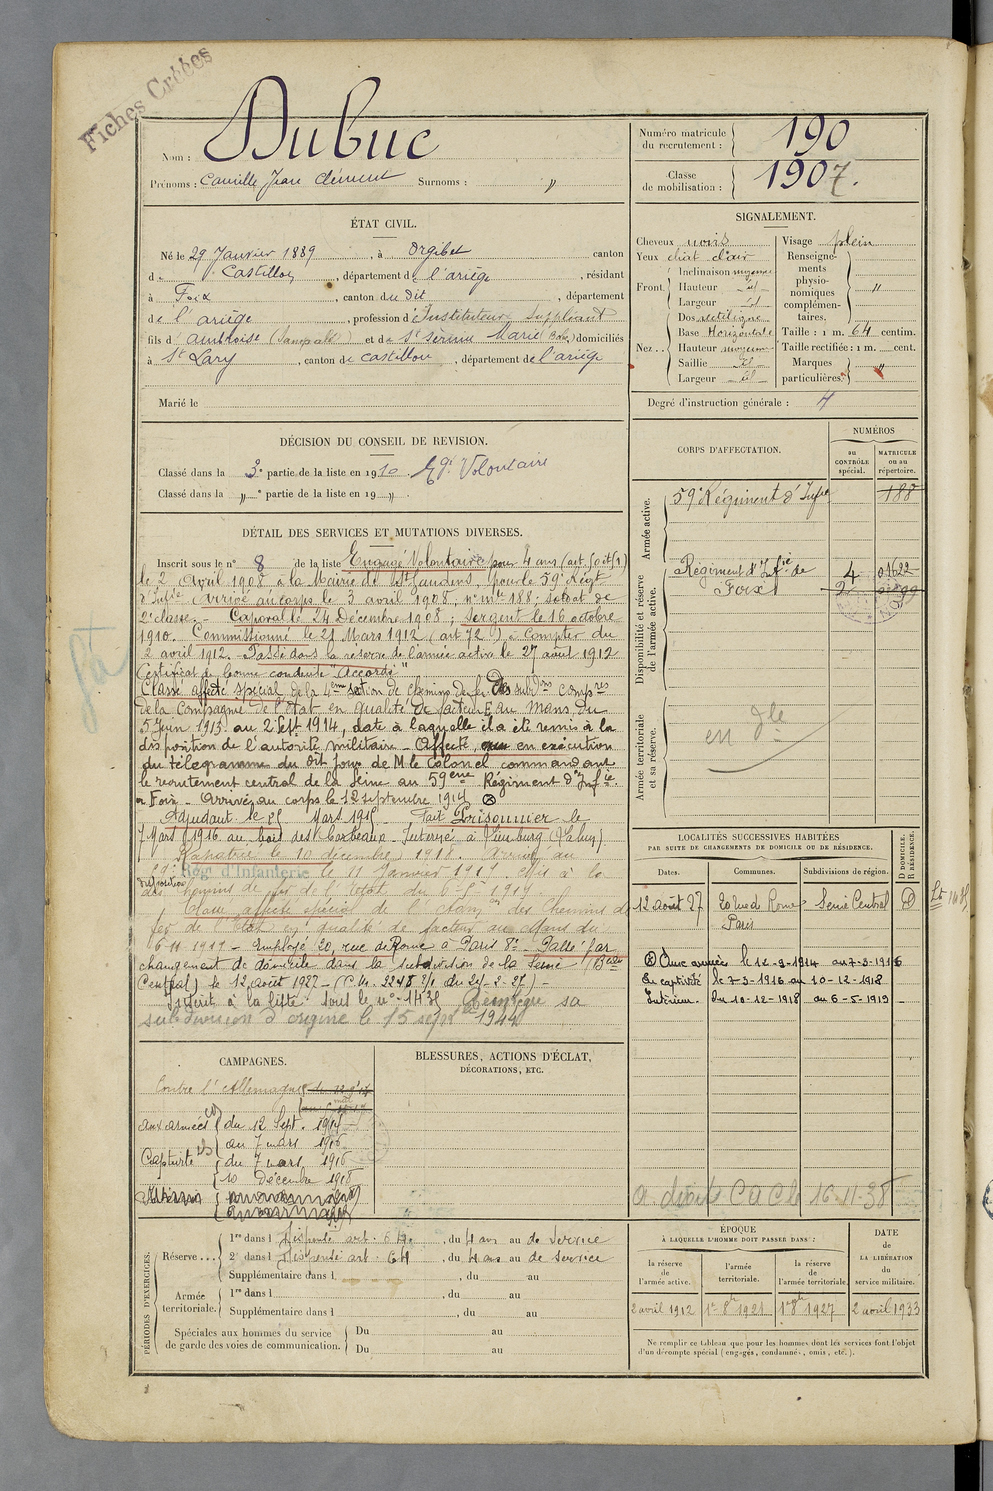 Fiches Créées
Nom : Dubuc
Prénoms : Camille Jean Clément Surnoms : "
Numéro matricule du recrutement : 190
Classe de mobilisation : 1907.
ÉTAT CIVIL.
Né le 29 Janvier 1889, à Orgibet canton
de Castillon, département de l'ariège, résidant
à Foix, canton du dit, département
de l'ariège, profession d'Instituteur Suppléant
fils d' ambroise et de St sernin Marie domiciliés
à St Lary, canton de castillon, département de l'ariège
Marié le
SIGNALEMENT.
Cheveux noirs
Yeux chat. clair
Front. Inclinaison moyenne
Hauteur id
Largeur id
Nez.. Dos rectiligne
Base Horizontale
Hauteur moyenne
Saillie id
Largeur id
Visage plein
Renseignements physionomiques complémentaires. "
Taille : 1 m. 64 centim.
Taille rectifiée : 1 m. cent.
Marques particulières : "
Degré d'instruction générale : 4
DÉCISION DU CONSEIL DE REVISION.
Classé dans la 3e partie de la liste en 1910. Egé Volontaire
Classé dans la " e partie de la liste en 19 "
CORPS D'AFFECTATION.
NUMÉROS
au CONTRÔLE spécial.
MATRICULE ou au répertoire.
Armée active.
59e Régiment d'Infie 188
Disponibilité et réserve de l'armée active.
Régiment d'Infie de Foix 4 01622
Armée territoriale et sa réserve.
en dle
DÉTAIL DES SERVICES ET MUTATIONS DIVERSES.
Inscrit sous le n° 8 de la liste Engagé Volontaire pour 4 ans
le 2 Avril 1908 à la Mairie de St Gaudens, pour le 59e Régt
d'Infie Arrivé au corps le 3 avril 1908, n° mle 188; soldat de
2e classe. Caporal le 24 Décembre 1908; sergent le 16 octobre
1910. Commissionné le 21 Mars 1912 (art 72) à compter du
2 avril 1912. Passé dans la réserve de l'armée active le 27 août 1912
Certificat de bonne conduite "Accordé"
Classé affecté spécial de la 4eme section de chemins de fer de subdons compres
de la Compagnie de l'Etat en qualité de facteur E au Mans, du
5 Juin 1913 au 2 sept 1914, date à laquelle il a été remis à la
disposition de l'autorité militaire - Affecté, en exécution
du télégramme du dit jour de M le Colonel commandant
le recrutement central de la Seine au 59eme Régiment d'Infie.
à Foix - Arrivé au corps le 12 septembre 1914 ⊗
Adjudant le 25 Mars 1915 - Fait Prisonnier le
7 Mars 1916 au bois des Corbeaux Interné à
Rapatrié le 10 décembre 1918. Arrivé au
59e Rég. d'Infanterie le 11 Janvier 1919. Mis à la
disposition des chemins de fer de l'Etat du
Classé affecté spécial de l' des chemins de
fer de l'Etat en qualité de facteur au Mans du
6 11 1919 - Employé 20, rue de Rome à Paris 8e. Passé par
changement de domicile dans la subdivision de la Seine (Beau
Central) le 12 août 1927 - (C.M. 2248 du 24-2-27) -
Inscrit à la liste sous le n° 1438 Réintègre sa
subdivision d'origine le 15 septbre 1944
LOCALITÉS SUCCESSIVES HABITÉES
PAR SUITE DE CHANGEMENTS DE DOMICILE OU DE RÉSIDENCE.
Dates. Communes. Subdivisions de région. D DOMICILE. R RÉSIDENCE.
12 août 27 20 rue d Rome Paris Seine Central D
⊗ Aux armées le 12-9-1914 au 7-3-1916
En captivité le 7-3-1916 au 10-12-1918
Intérieur du 10-12-1918 au 6-5-1919
a droit C a C le 16-11-38
CAMPAGNES.
Contre l'Allemagne
aux armées du 12 Sept. 1914
au 7 mars 1916
Captivité du 7 mars 1916
10 Décembre 1918
BLESSURES, ACTIONS D'ÉCLAT,
DÉCORATIONS, ETC.
PÉRIODES D'EXERCICES.
Réserve... 1re dans l Dispensé art. 64, du 4 ans au de service
2e dans l Dispensé art. 64, du 4 ans au de service
Supplémentaire dans l , du au
Armée territoriale. 1re dans l , du au
Supplémentaire dans l , du au
Spéciales aux hommes du service de garde des voies de communication. Du au
Du au
ÉPOQUE
À LAQUELLE L'HOMME DOIT PASSER DANS :
la réserve de l'armée active.
l'armée territoriale.
la réserve de l'armée territoriale.
DATE de LA LIBÉRATION du service militaire.
2 avril 1912 1er 8bre 1921 1er 8bre 1927 2 avril 1933
Ne remplir ce tableau que pour les hommes dont les services font l'objet
d'un décompte spécial (engagés, condamnés, omis, etc.).